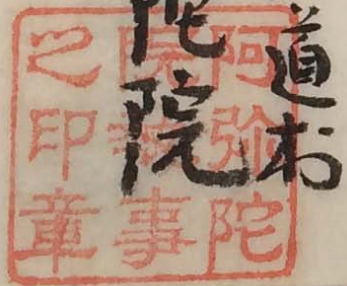 道村
陀院
阿弥陀
院執事
之印章